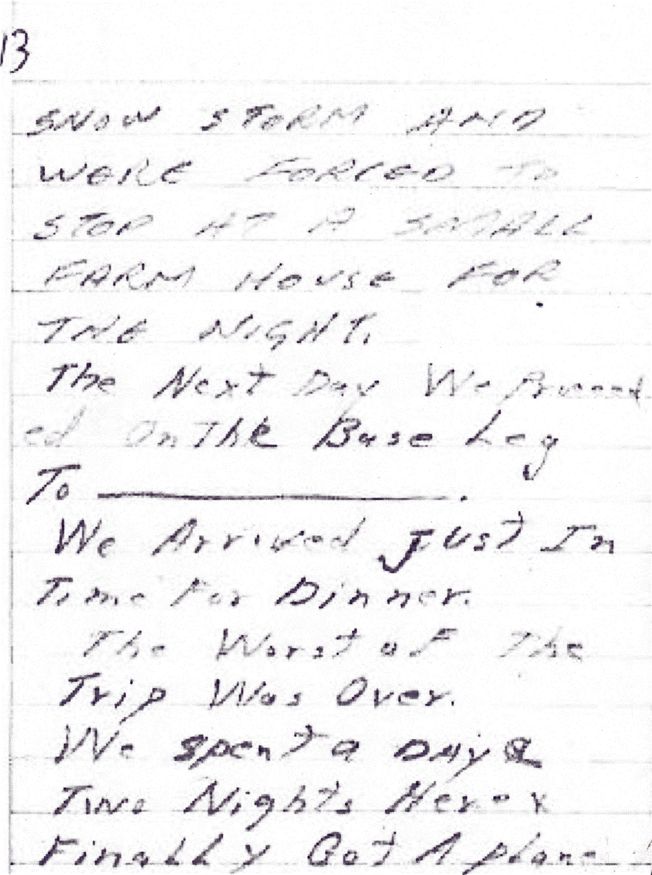 13
SNOW STORM AND
WERE FORCED TO
STOP AT A SMALL
FARM HOUSE FOR
THE NIGHT.
The Next Day We Proceed
ed On The Base Leg
To ____________.
We Arrived Just In
Time For Dinner.
The Worst of The
Trip Was Over.
We spent a DAY &
Two Nights Here &
Finally Got A plane